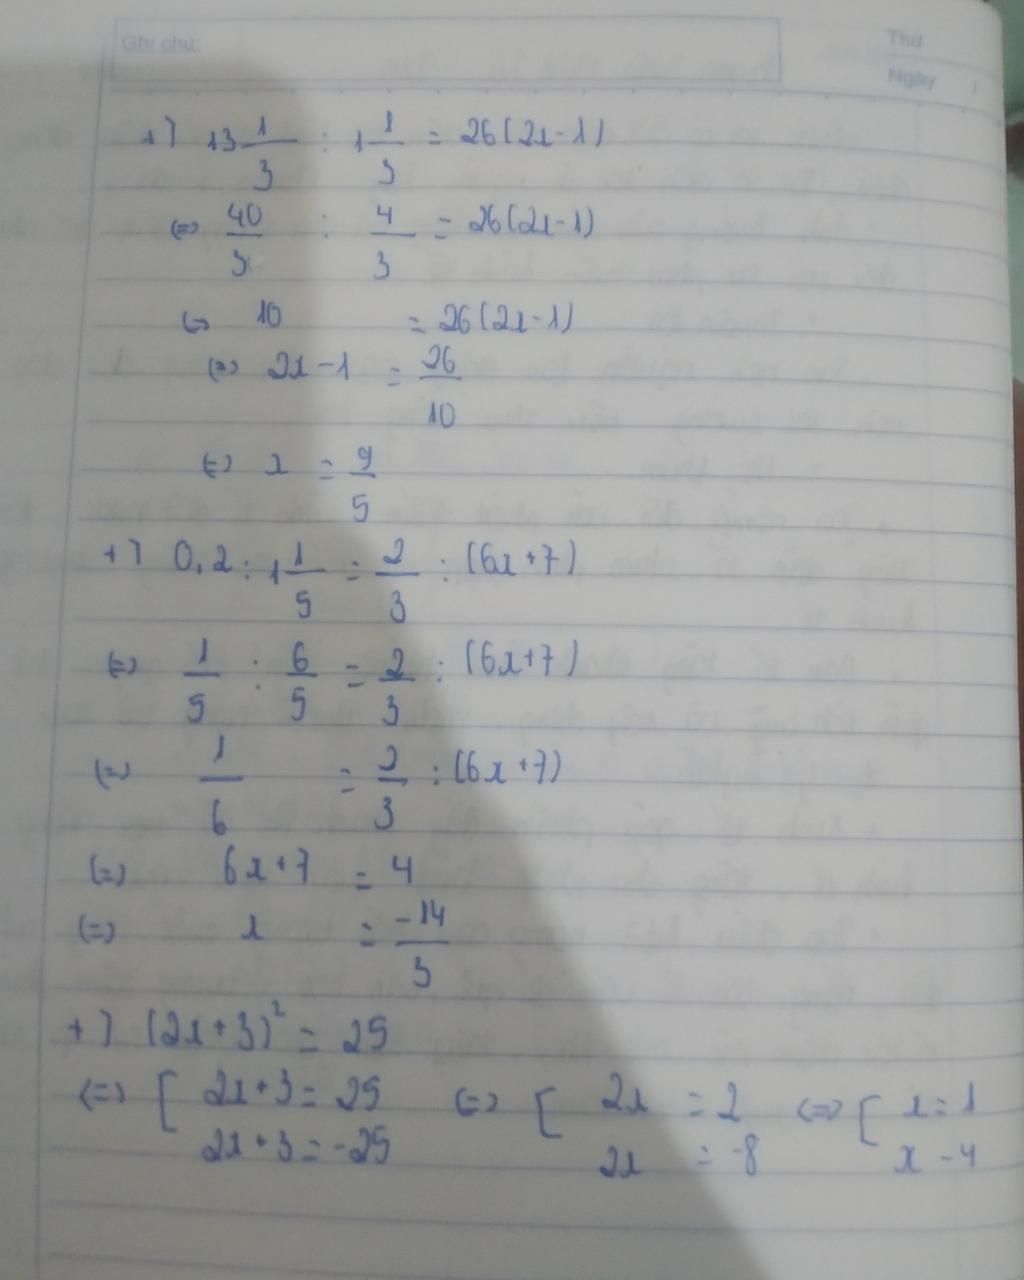 Ghi chú:
Thứ
Ngày
+) 13 1/3 : 1 1/3 = 26(2x-1)
(=) 40/3 : 4/3 = 26(2x-1)
(=) 10 = 26(2x-1)
(=) 2x-1 = 26/10
(=) x = 9/5
+) 0,2 : 1 1/5 = 2/3 : (6x+7)
(=) 1/5 : 6/5 = 2/3 : (6x+7)
(=) 1/6 = 2/3 : (6x+7)
(=) 6x+7 = 4
(=) x = -14/3
+) (2x+3)² = 25
(=) [ 2x+3 = 25 (=) [ 2x = 2 (=) [ x = 1
2x+3 = -25 2x = -8 x - 4